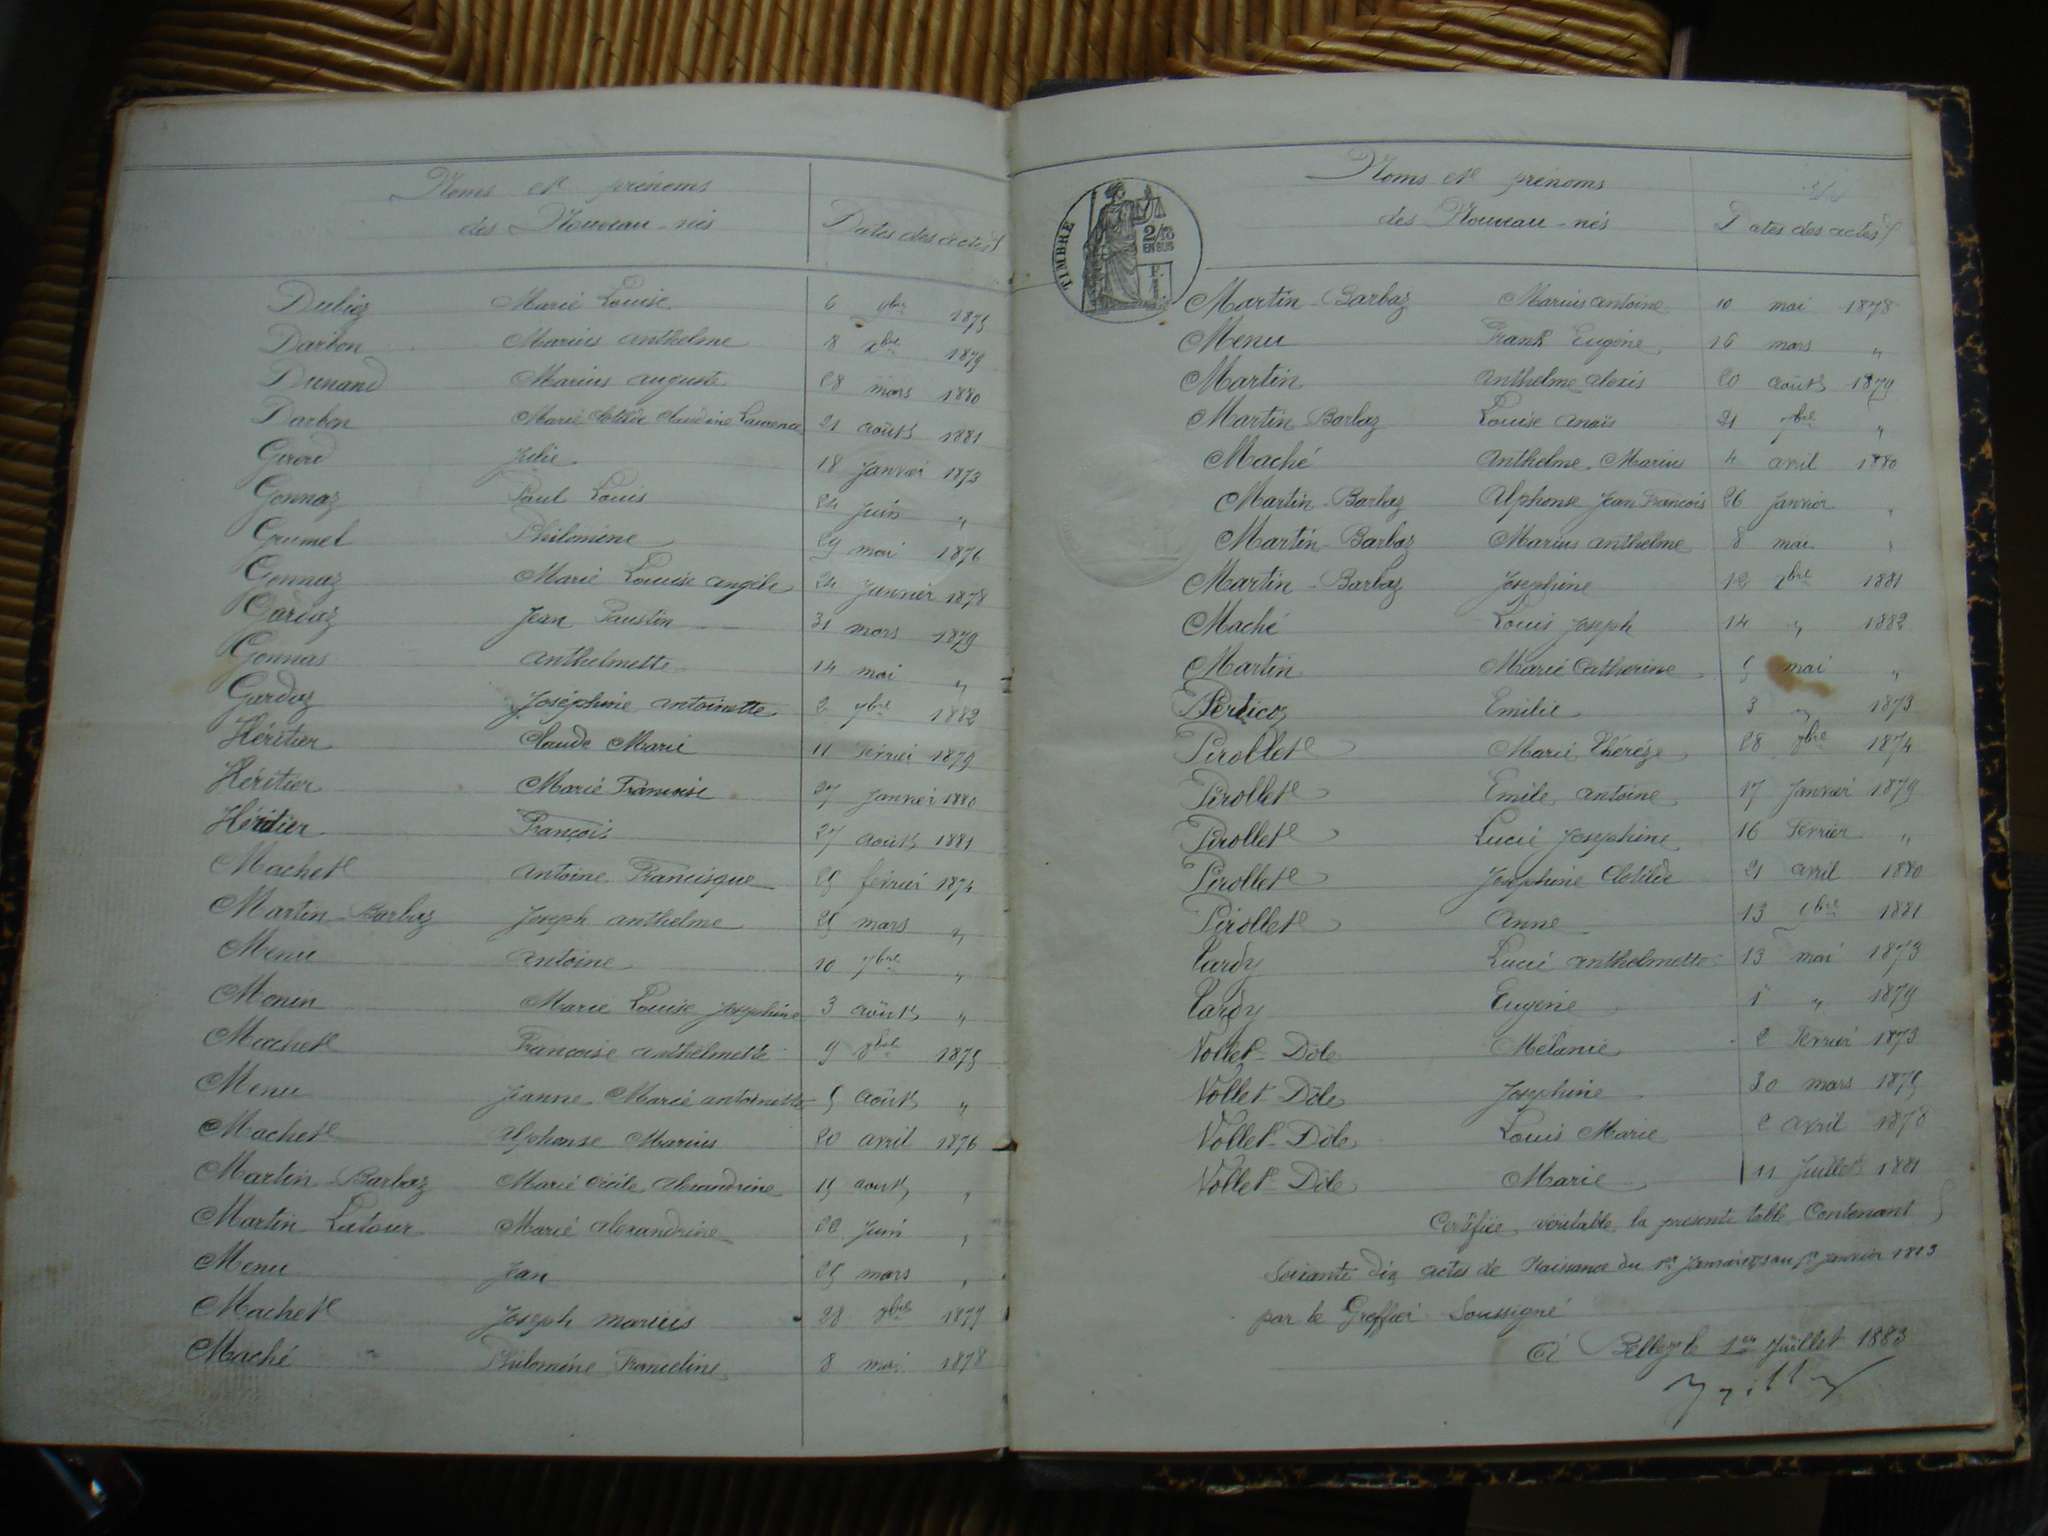 Noms et prénoms
des Nouveau-nés
Dates des actes
Dubiez Marie Louise 6 9bre 1875
Darbon Marius anthelme 8 xbre 1879
Dunand Marius auguste 28 mars 1880
Darbon Marie Clotilde Claudine Laurence 21 août 1881
Girod Julie 18 Janvier 1873
Gonnaz Paul Louis 24 Juin "
Grumel Philomène 29 mai 1876
Gonnaz Marie Louise angèle 24 Janvier 1878
Gardaz Jean Faustin 31 mars 1879
Gonnas anthelmette 14 mai "
Gardaz Joséphine antoinette 2 7bre 1882
Héritier Claude Marie 11 Février 1879
Héritier Marie Francoise 27 Janvier 1880
Héritier François 27 août 1881
Machet antoine Francisque 25 février 1874
Martin-Barbaz Joseph anthelme 25 mars "
Menu antoine 10 7bre "
Monin Marie Louise Josephine 3 août "
Machet Francoise anthelmette 9 8bre 1875
Menu Jeanne Marie antoinette 5 Août "
Machet Alphonse Marius 20 avril 1876
Martin Barbaz Marie Cécile alexandrine 15 aout "
Martin Latour Marie alexandrine 22 Juin "
Menu Jean 25 mars "
Machet Joseph marius 28 1877
Maché Philomène Franceline 8 mai 1878
TIMBRE
2/10
EN SUS
Noms et prénoms
des Nouveau-nés
Dates des actes
Martin-Barbaz Marius antoine 10 mai 1878
Menu Frank Eugène 16 mars "
Martin anthelme alexis 20 août 1879
Martin Barbaz Louise anaïs 21 7bre "
Maché Anthelme Marius 4 avril 1880
Martin-Barbaz Alphonse Jean Francois 26 Janvier "
Martin-Barbaz Marius anthelme 8 mai "
Martin-Barbaz Josephine 12 xbre 1881
Maché Louis Joseph 14 " 1882
Martin Marie Catherine 5 mai "
Pericoz Emilie 3 " 1873
Pirollet Marie Thérèse 28 1874
Pirollet Emile antoine 17 Janvier 1879
Pirollet Lucie Josephine 16 Fevrier "
Pirollet Josephine Clotilde 21 avril 1880
Pirollet Anne 13 9bre 1881
Tardy Lucie anthelmette 13 mai 1873
Tardy Eugène 1er " 1879
Vollet-Dôle Mélanie 2 Fevrier 1873
Vollet-Dôle Josephine 30 mars 1875
Vollet-Dôle Louis Marie 2 avril 1878
Vollet-Dôle Marie 11 Juillet 1881
Certifiée véritable la presente table Contenant
Soixante dix actes de Naissance du 1er Janvier au 1er Janvier 1883
par le Greffier Soussigné
A Belley le 1er Juillet 1883